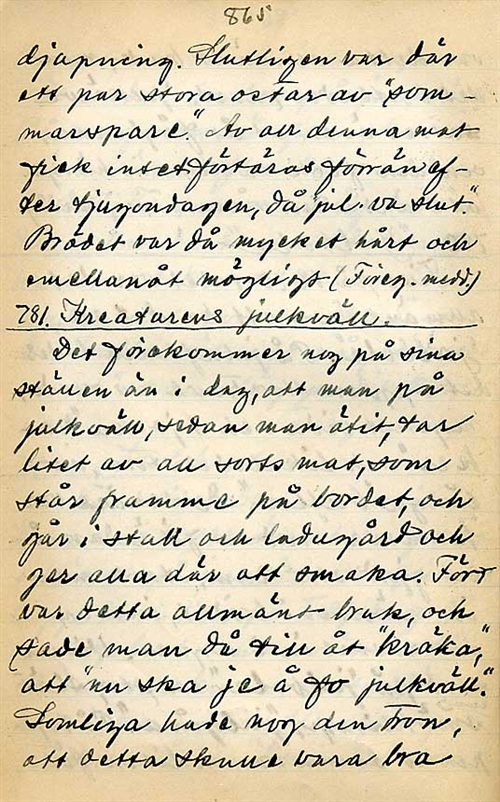 865
djapning. Slutligen var där
ett par stora ostar av "som-
marspare." Av all denna mat
fick intet förtäras förrän ef-
ter tjugondagen, då "jul va slut."
Brödet var då mycket hårt och
emellanåt mögligt (Föreg. medd.)
781. Kreaturens julkväll.
Det förekommer nog på sina
ställen än i dag, att man på
julkväll, sedan man ätit, tar
litet av all sorts mat, som
står framme på bordet, och
går i stall och ladugård och
ger alla där att smaka. Förr
var detta allmänt bruk, och
sade man då till åt "kräka,"
att "nu ska je å fo julkväll."
Somliga hade nog den tron,
att detta skulle vara bra